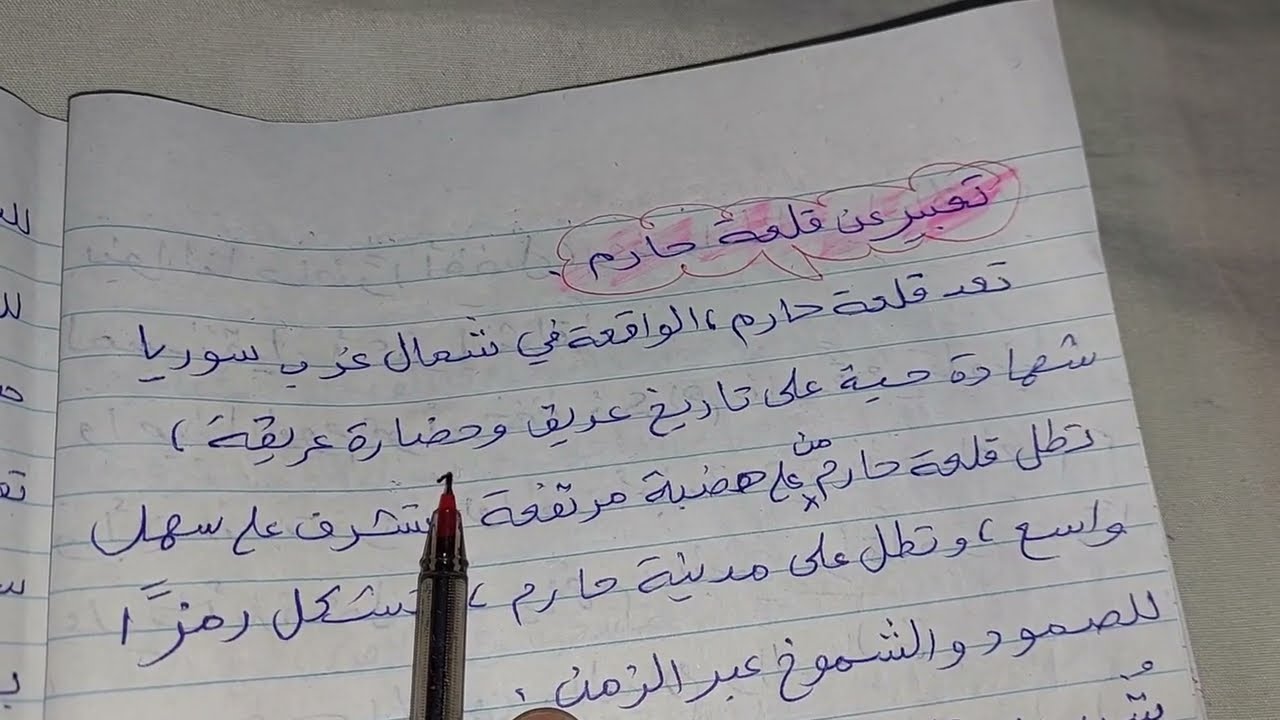 تعبير عن قلعة حارم .
تعد قلعة حارم ، الواقعة في شمال غرب سوريا
شهادة حية على تاريخ عريق وحضارة عريقة ،
تطل قلعة حارم من على هضبة مرتفعة تشرف على سهل
واسع ، وتطل على مدينة حارم ، تشكل رمزًا
للصمود والشموخ عبر الزمن .